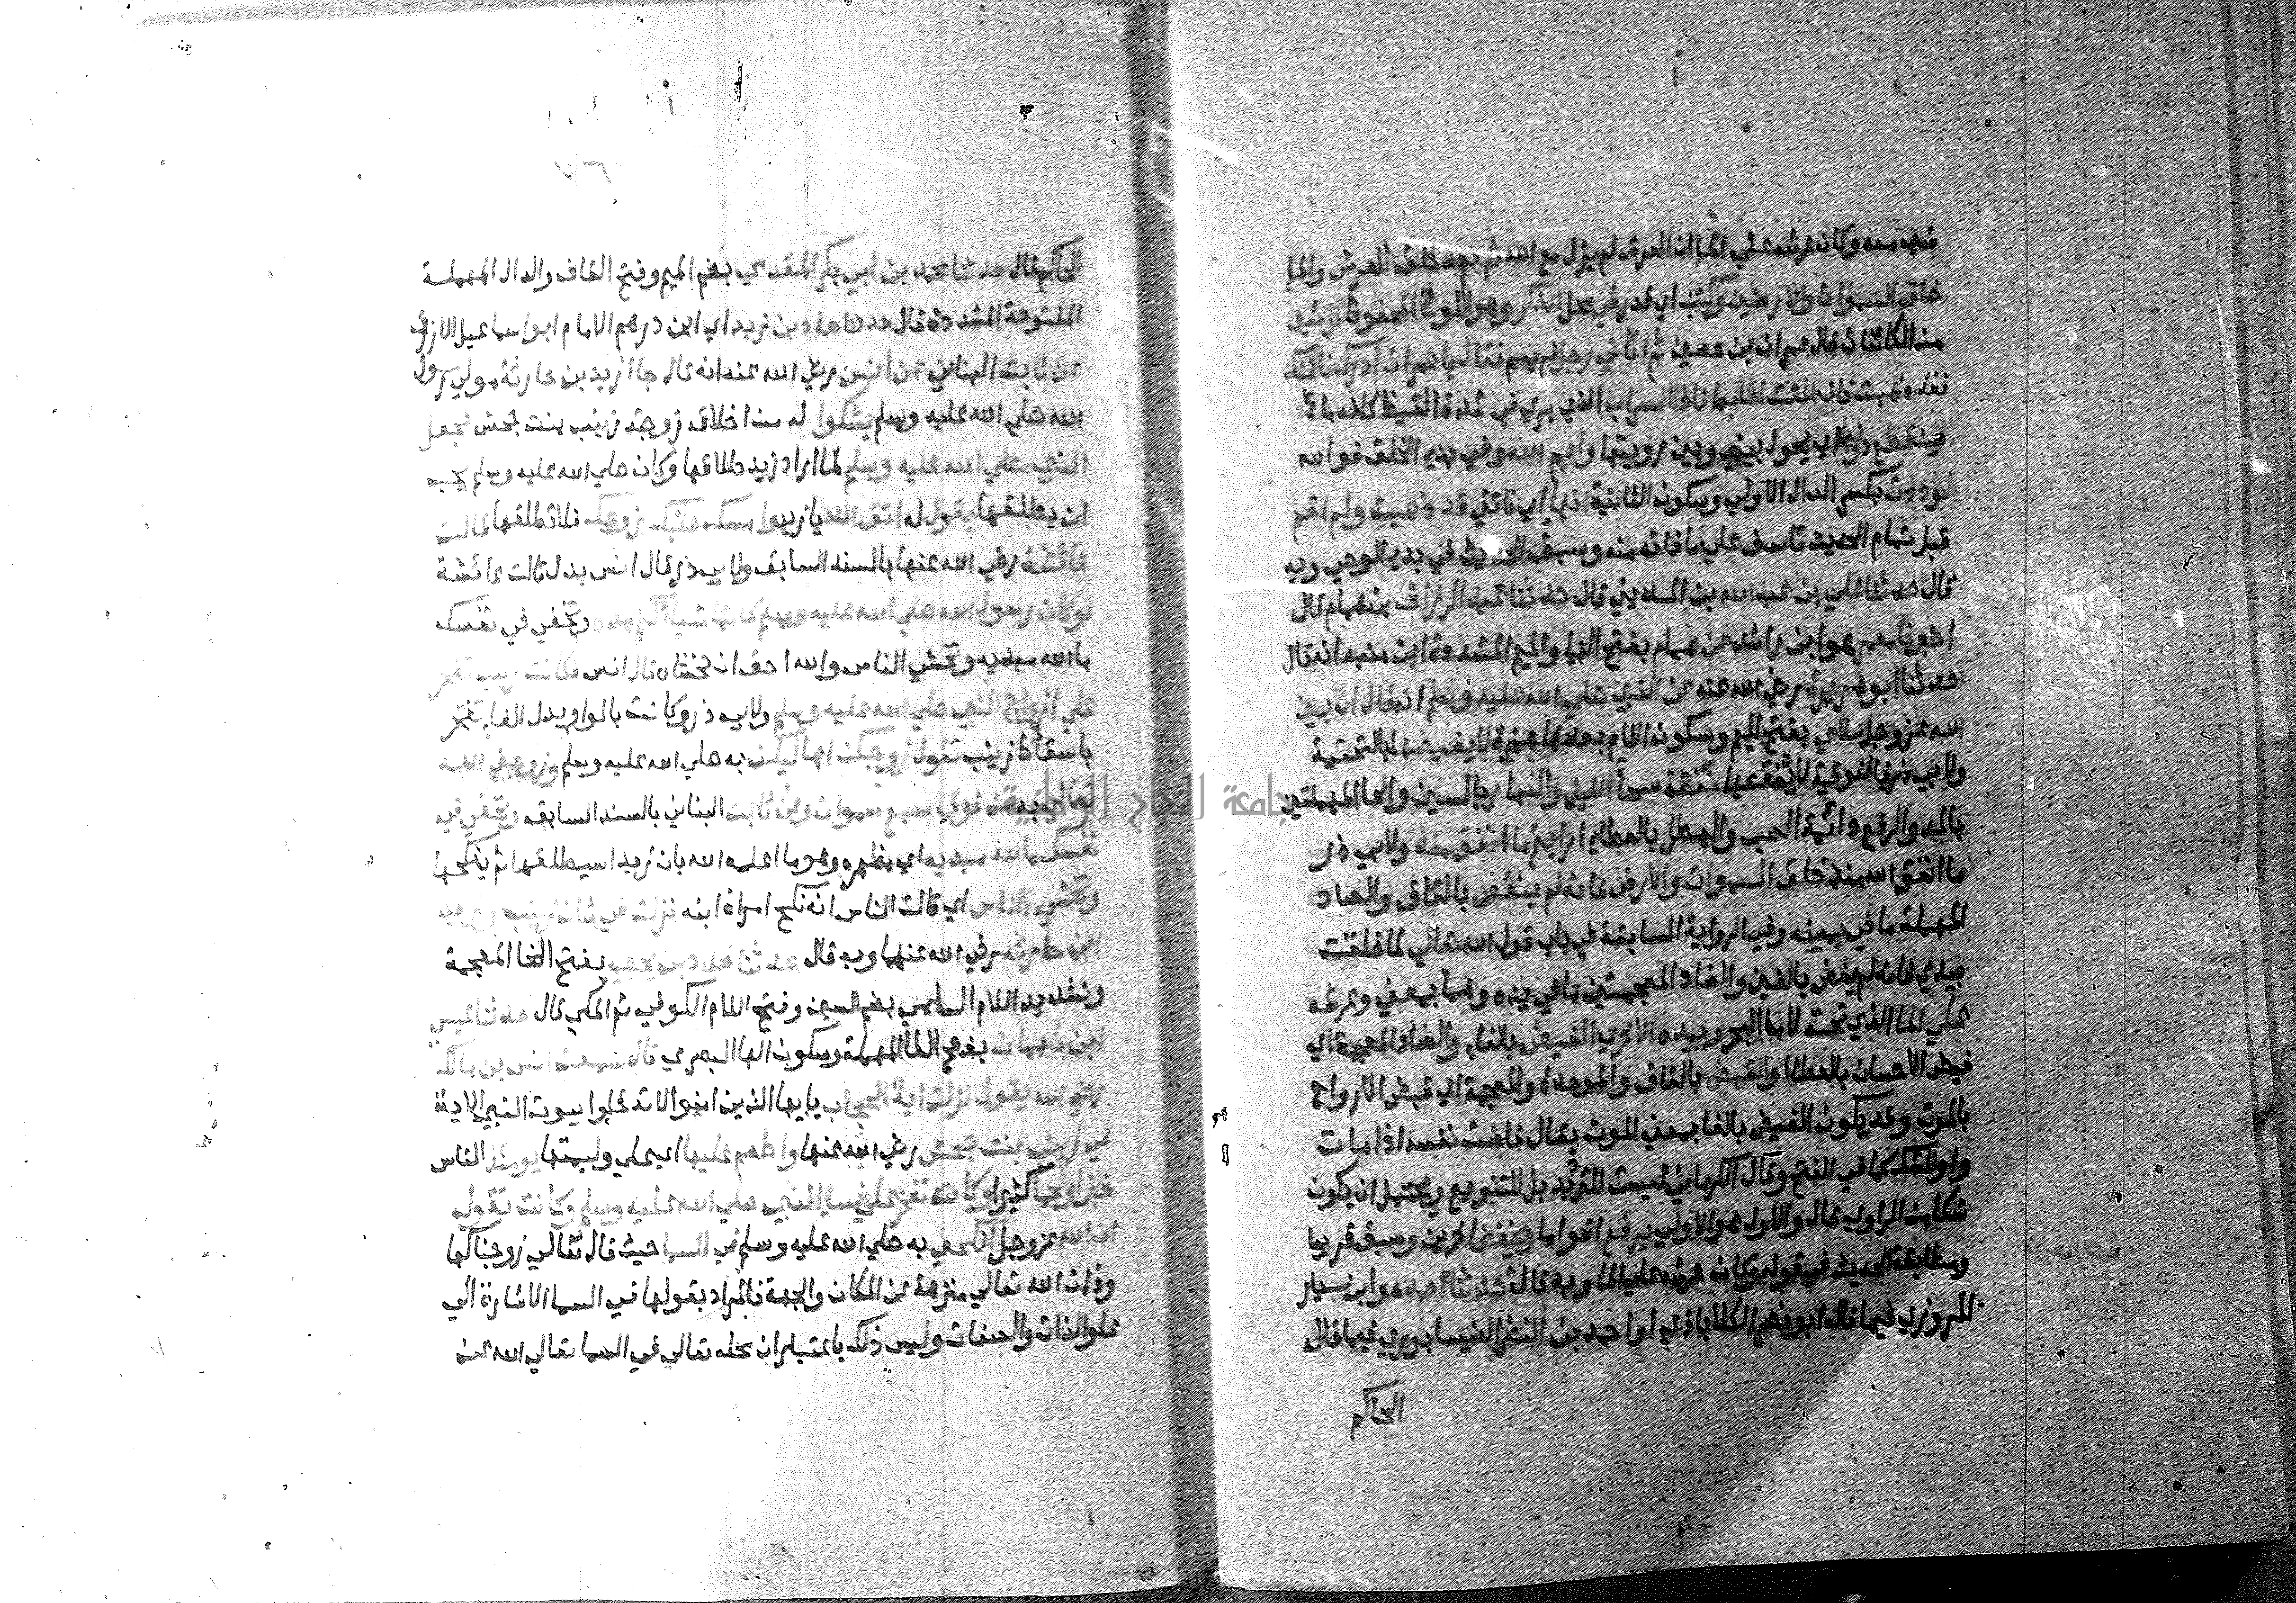 وكان عرشه علي الما ان العرش لم يزل مع الله خالق العرش والما
خلق السموات والارضين وكتب اي قدر في محل الذكر وهو اللوح المحفوظ كل شي
من الكائنات قال عمران بن حصين ثم اتاني رجل لم يسم فقال يا عمران ادرك ناقتك
فقد ذهبت فانطلقت اطلبها فاذا السراب الذي يري في شدة القيظ كانه ماء
ينقطع دونها اي يحول بيني وبين رويتها وايم الله وفي بدء الخلق فوالله
لوددت بكسر الدال الاولي وسكون الثانية انها اي ناقتي قد ذهبت ولم اقم
قبل تمام الحديث تاسف علي ما فاته منه وسبق الحديث في بدء الوحي وبه
قال حدثنا علي بن عبد الله بن المديني قال حدثنا عبد الرزاق بن همام قال
اخبرنا معمر هو ابن راشد عن همام بفتح الها والميم المشددة ابن منبه انه قال
حدثنا ابو هريرة رضي الله عنه عن النبي صلي الله عليه وسلم انه قال ان يمين
الله عز وجل ملاي بفتح الميم وسكون اللام بعدها همزة لا يغيضها بالتحتية
ولابي ذر بالفوقية لا تغيضها نفقة سحا الليل والنهار بالسين والحا المهملتين
بالمد والرفع دائمة الصب والهطل بالعطاء ارايتم ما انفق منذ ولابي ذر
ما انفق الله منذ خلق السموات والارض فانه لم ينقص بالقاف والصاد
المهملة ما في يمينه وفي الرواية السابقة في باب قول الله تعالي لما خلقت
بيدي فانه لم يغض بالغين والضاد المعجمتين ما في يده وهما بمعني وعرشه
علي الما الذي تحته لا ما البحر وبيده الاخري الفيض بالفاء والضاد المعجمة اي
فيض الاحسان بالعطا او القبض بالقاف والموحدة والمعجمة اي قبض الارواح
بالموت وقد يكون الفيض بالفا بمعني الموت يقال فاضت نفسه اذا مات
واو للشك كما في الفتح وقال الكرماني ليست للترديد بل للتنويع ويحتمل ان يكون
شكا من الراوي قال والاول هو الاولي يرفع اقواما ويخفض اخرين وسبق قريبا
ومطابقة الحديث في قوله وكان عرشه علي الما وبه قال حدثنا احمد هو ابن سيار
المروزي فيما قاله ابو نصر الكلاباذي او احمد بن النضر النيسابوري فيما قال
الحاكم
٧٦
الحاكم قال حدثنا محمد بن ابي بكر المقدمي بضم الميم وفتح القاف والدال المهملة
المفتوحة المشددة قال حدثنا حماد بن زيد اي ابن درهم الامام ابو اسماعيل الازرق
عن ثابت البناني عن انس رضي الله عنه انه قال جا زيد بن حارثة مولي رسول
الله صلي الله عليه وسلم يشكوا له من اخلاق زوجته زينب بنت جحش فجعل
النبي صلي الله عليه وسلم لما اراد زيد طلاقها وكان صلي الله عليه وسلم يحب
ان يطلقها يقول له اتق الله يا زيد وامسك عليك زوجك فلا تطلقها قالت
عائشة رضي الله عنها بالسند السابق ولابي ذر قال انس بدل قالت عائشة
لو كان رسول الله صلي الله عليه وسلم كاتما شيا لكتم هذه وتخفي في نفسك
ما الله مبديه وتخشي الناس والله احق ان تخشاه قال انس فكانت زينب تفخر
علي ازواج النبي صلي الله عليه وسلم ولابي ذر وكانت بالواو بدل الفا تفخر
باسقاط زينب تقول زوجكن اهاليكن به صلي الله عليه وسلم وزوجني الله
تعالي به من فوق سبع سموات وعن ثابت البناني بالسند السابق وتخفي في
نفسك ما الله مبديه اي مظهره وهو ما اعلمه الله بان زيدا سيطلقها ثم ينكحها
وتخشي الناس اي قالت الناس انه نكح امراة ابنه نزلت في شان زينب وزيد
ابن حارثة رضي الله عنهما وبه قال حدثنا خلاد بن يحيي بفتح الخا المعجمة
وتشديد اللام السلمي بضم السين وفتح اللام الكوفي ثم المكي قال حدثنا عيسي
ابن طهمان بفتح الطا المهملة وسكون الها البصري قال سمعت انس بن مالك
رضي الله يقول نزلت اية الحجاب يا يها الذين امنوا لا تدخلوا بيوت النبي الاية
في زينب بنت جحش رضي الله عنها واطعم عليها اي علي وليمتها يومئذ الناس
خبزا ولحما كثيرا وكانت تفخر علي نسا النبي صلي الله عليه وسلم وكانت تقول
ان الله عز وجل انكحني به صلي الله عليه وسلم في السما حيث قال تعالي زوجناكها
وذات الله تعالي منزهة عن المكان والجهة فالمراد بقولها في السما الاشارة الي
علو الذات والصفات وليس ذلك باعتبار ان محله تعالي في السما تعالي الله عن
جامعة النجاح